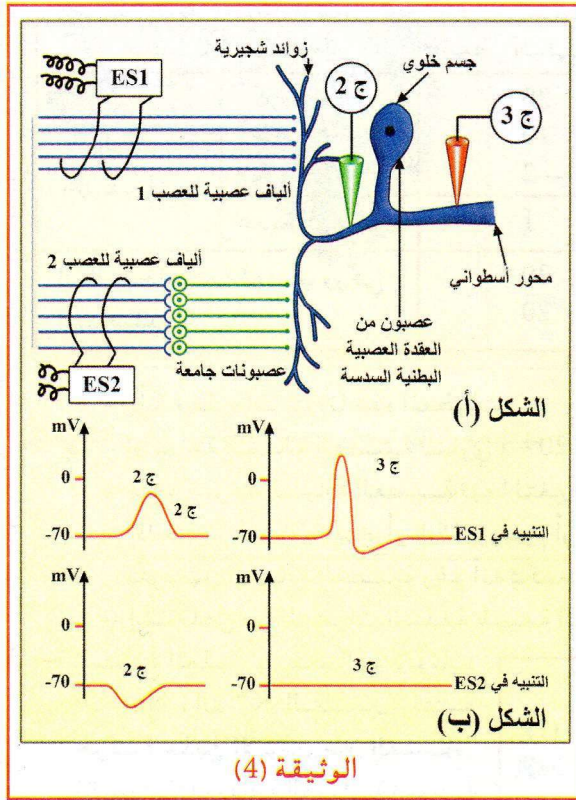 زوائد شجيرية
ES1
جسم خلوي
ج 2
ج 3
ألياف عصبية للعصب 1
ألياف عصبية للعصب 2
محور أسطواني
عصبون من
العقدة العصبية
البطنية السدسة
ES2
عصبونات جامعة
الشكل (أ)
mV
0
-70
ج 2
ج 2
mV
0
-70
ج 3
التنبيه في ES1
mV
0
-70
ج 2
mV
0
-70
ج 3
التنبيه في ES2
الشكل (ب)
الوثيقة (4)